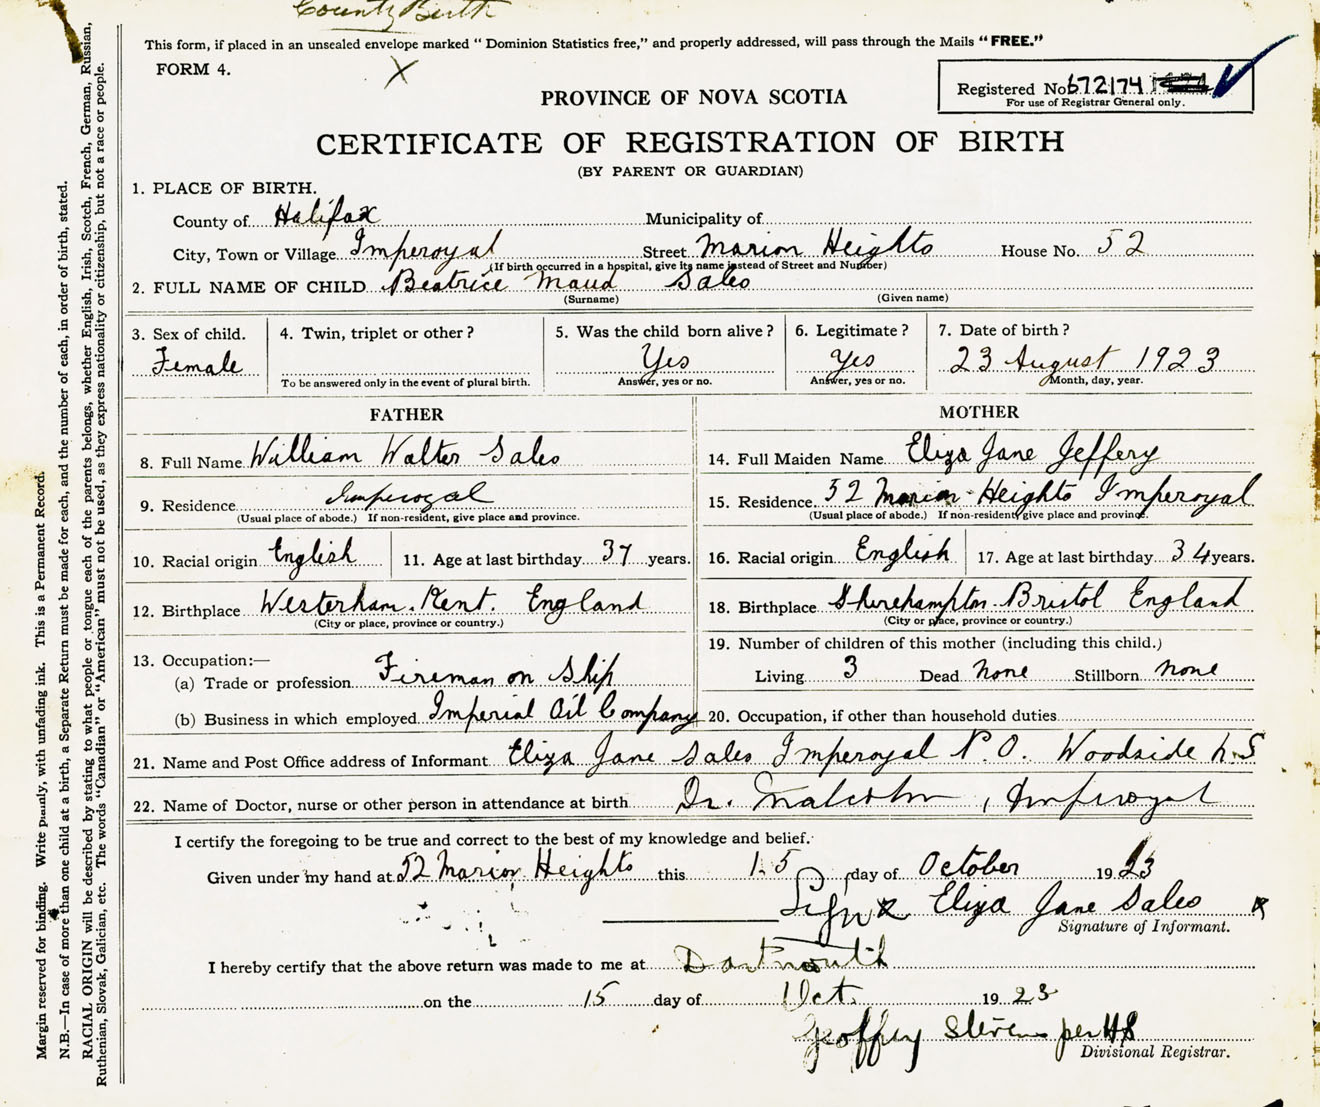 County Birth
This form, if placed in an unsealed envelope marked “Dominion Statistics free,” and properly addressed, will pass through the Mails “FREE.”
FORM 4.
X
Registered No 672174
For use of Registrar General only.
PROVINCE OF NOVA SCOTIA
CERTIFICATE OF REGISTRATION OF BIRTH
(BY PARENT OR GUARDIAN)
1. PLACE OF BIRTH.
County of Halifax Municipality of
City, Town or Village Imperoyal Street Marion Heights House No. 52
(If birth occurred in a hospital, give its name instead of Street and Number)
2. FULL NAME OF CHILD Beatrice Maud Sales
(Surname) (Given name)
3. Sex of child. 4. Twin, triplet or other? 5. Was the child born alive? 6. Legitimate? 7. Date of birth?
Female Yes Yes 23 August 1923
To be answered only in the event of plural birth. Answer, yes or no. Answer, yes or no. Month, day, year.
FATHER MOTHER
8. Full Name William Walter Sales 14. Full Maiden Name Eliza Jane Jeffery
9. Residence Imperoyal 15. Residence 52 Marion Heights Imperoyal
(Usual place of abode.) If non-resident, give place and province. (Usual place of abode.) If non-resident, give place and province.
10. Racial origin English 11. Age at last birthday 37 years. 16. Racial origin English 17. Age at last birthday 34 years.
12. Birthplace Westerham. Kent. England 18. Birthplace Shirehampton. Bristol England
(City or place, province or country.) (City or place, province or country.)
19. Number of children of this mother (including this child.)
13. Occupation:—
(a) Trade or profession Fireman on Ship Living 3 Dead None Stillborn none
(b) Business in which employed Imperial Oil Company 20. Occupation, if other than household duties
21. Name and Post Office address of Informant Eliza Jane Sales Imperoyal P.O. Woodside N.S
22. Name of Doctor, nurse or other person in attendance at birth Dr. Malcolm, Imperoyal
I certify the foregoing to be true and correct to the best of my knowledge and belief.
Given under my hand at 52 Marion Heights this 15 day of October 1923
Sign x Eliza Jane Sales x
Signature of Informant.
I hereby certify that the above return was made to me at Dartmouth
on the 15 day of Oct. 1923
Geoffrey Stevens per HS
Divisional Registrar.
Margin reserved for binding. Write plainly, with unfading ink. This is a Permanent Record.
N.B.—In case of more than one child at a birth, a Separate Return must be made for each, and the number of each, in order of birth, stated.
RACIAL ORIGIN will be described by stating to what people or tongue each of the parents belongs, whether English, Irish, Scotch, French, German, Russian,
Ruthenian, Slovak, Galician, etc. The words “Canadian” or “American” must not be used, as they express nationality or citizenship, but not a race or people.